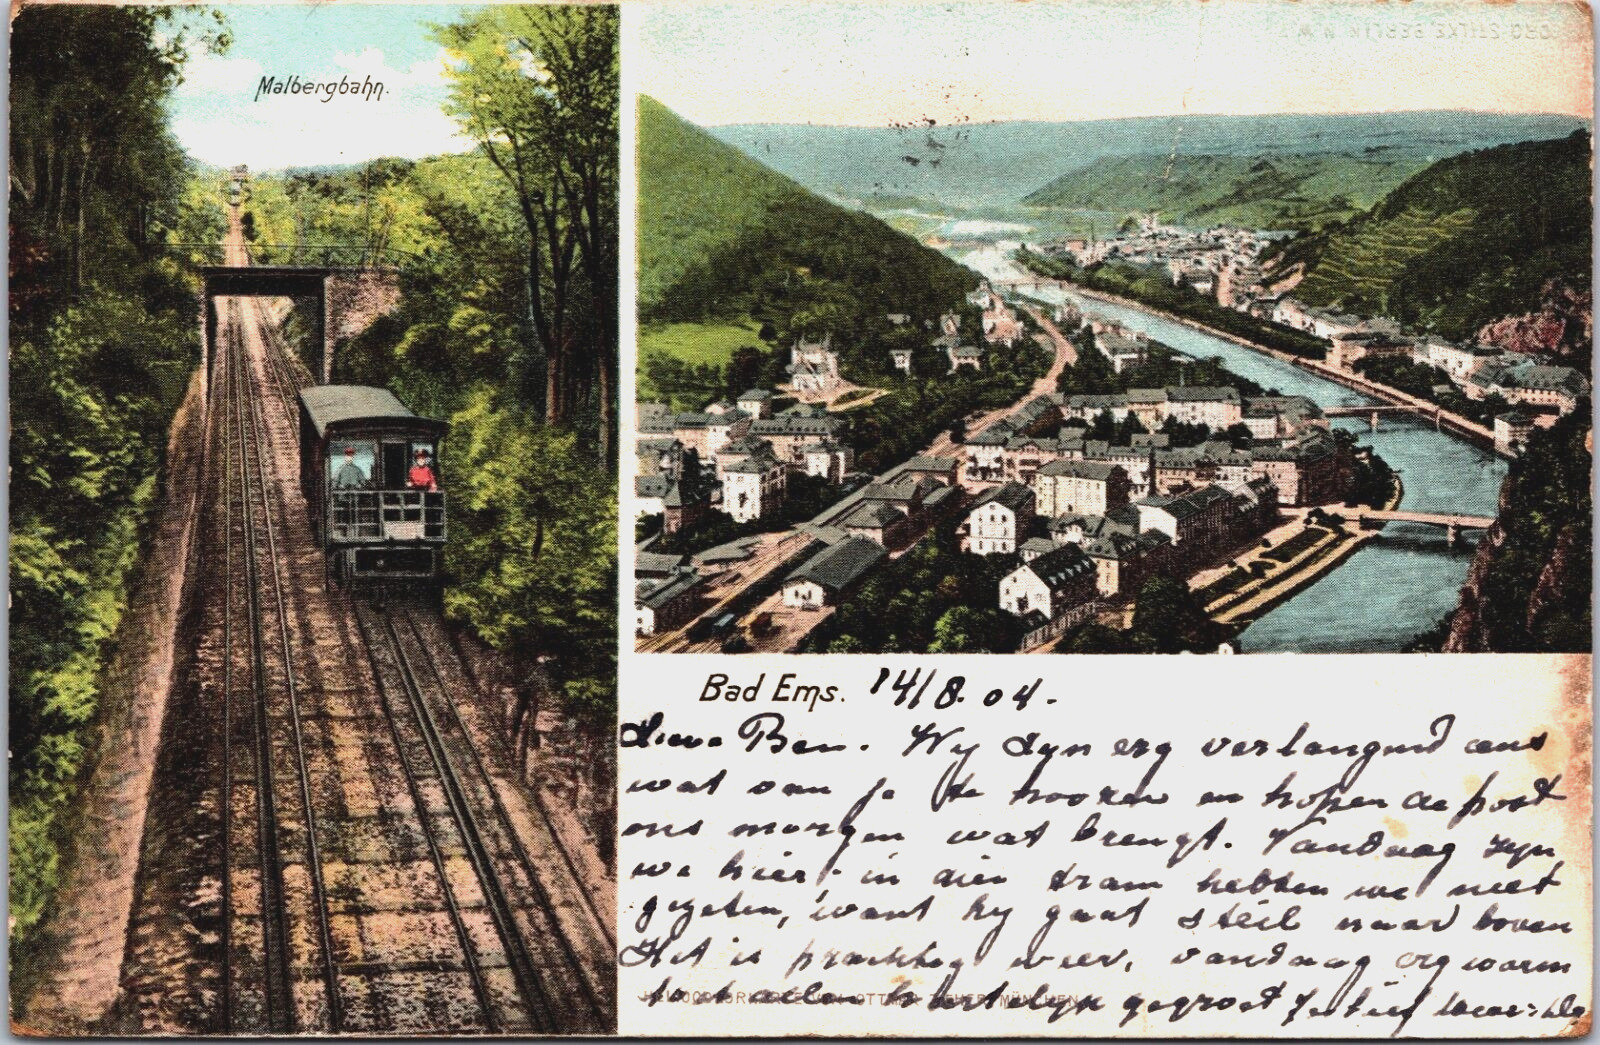 Malbergbahn.
Bad Ems. 14/8.04.
Lieve Ben. Wy zyn erg verlangend eens
wat van je te hooren en hopen de post
ons morgen wat brengt. Vandaag zyn
we hier, in dien tram hebben we niet
gezeten, want hy gaat steil naar boven
Het is prachtig weer, vandaag erg warm
hartelyk gegroet